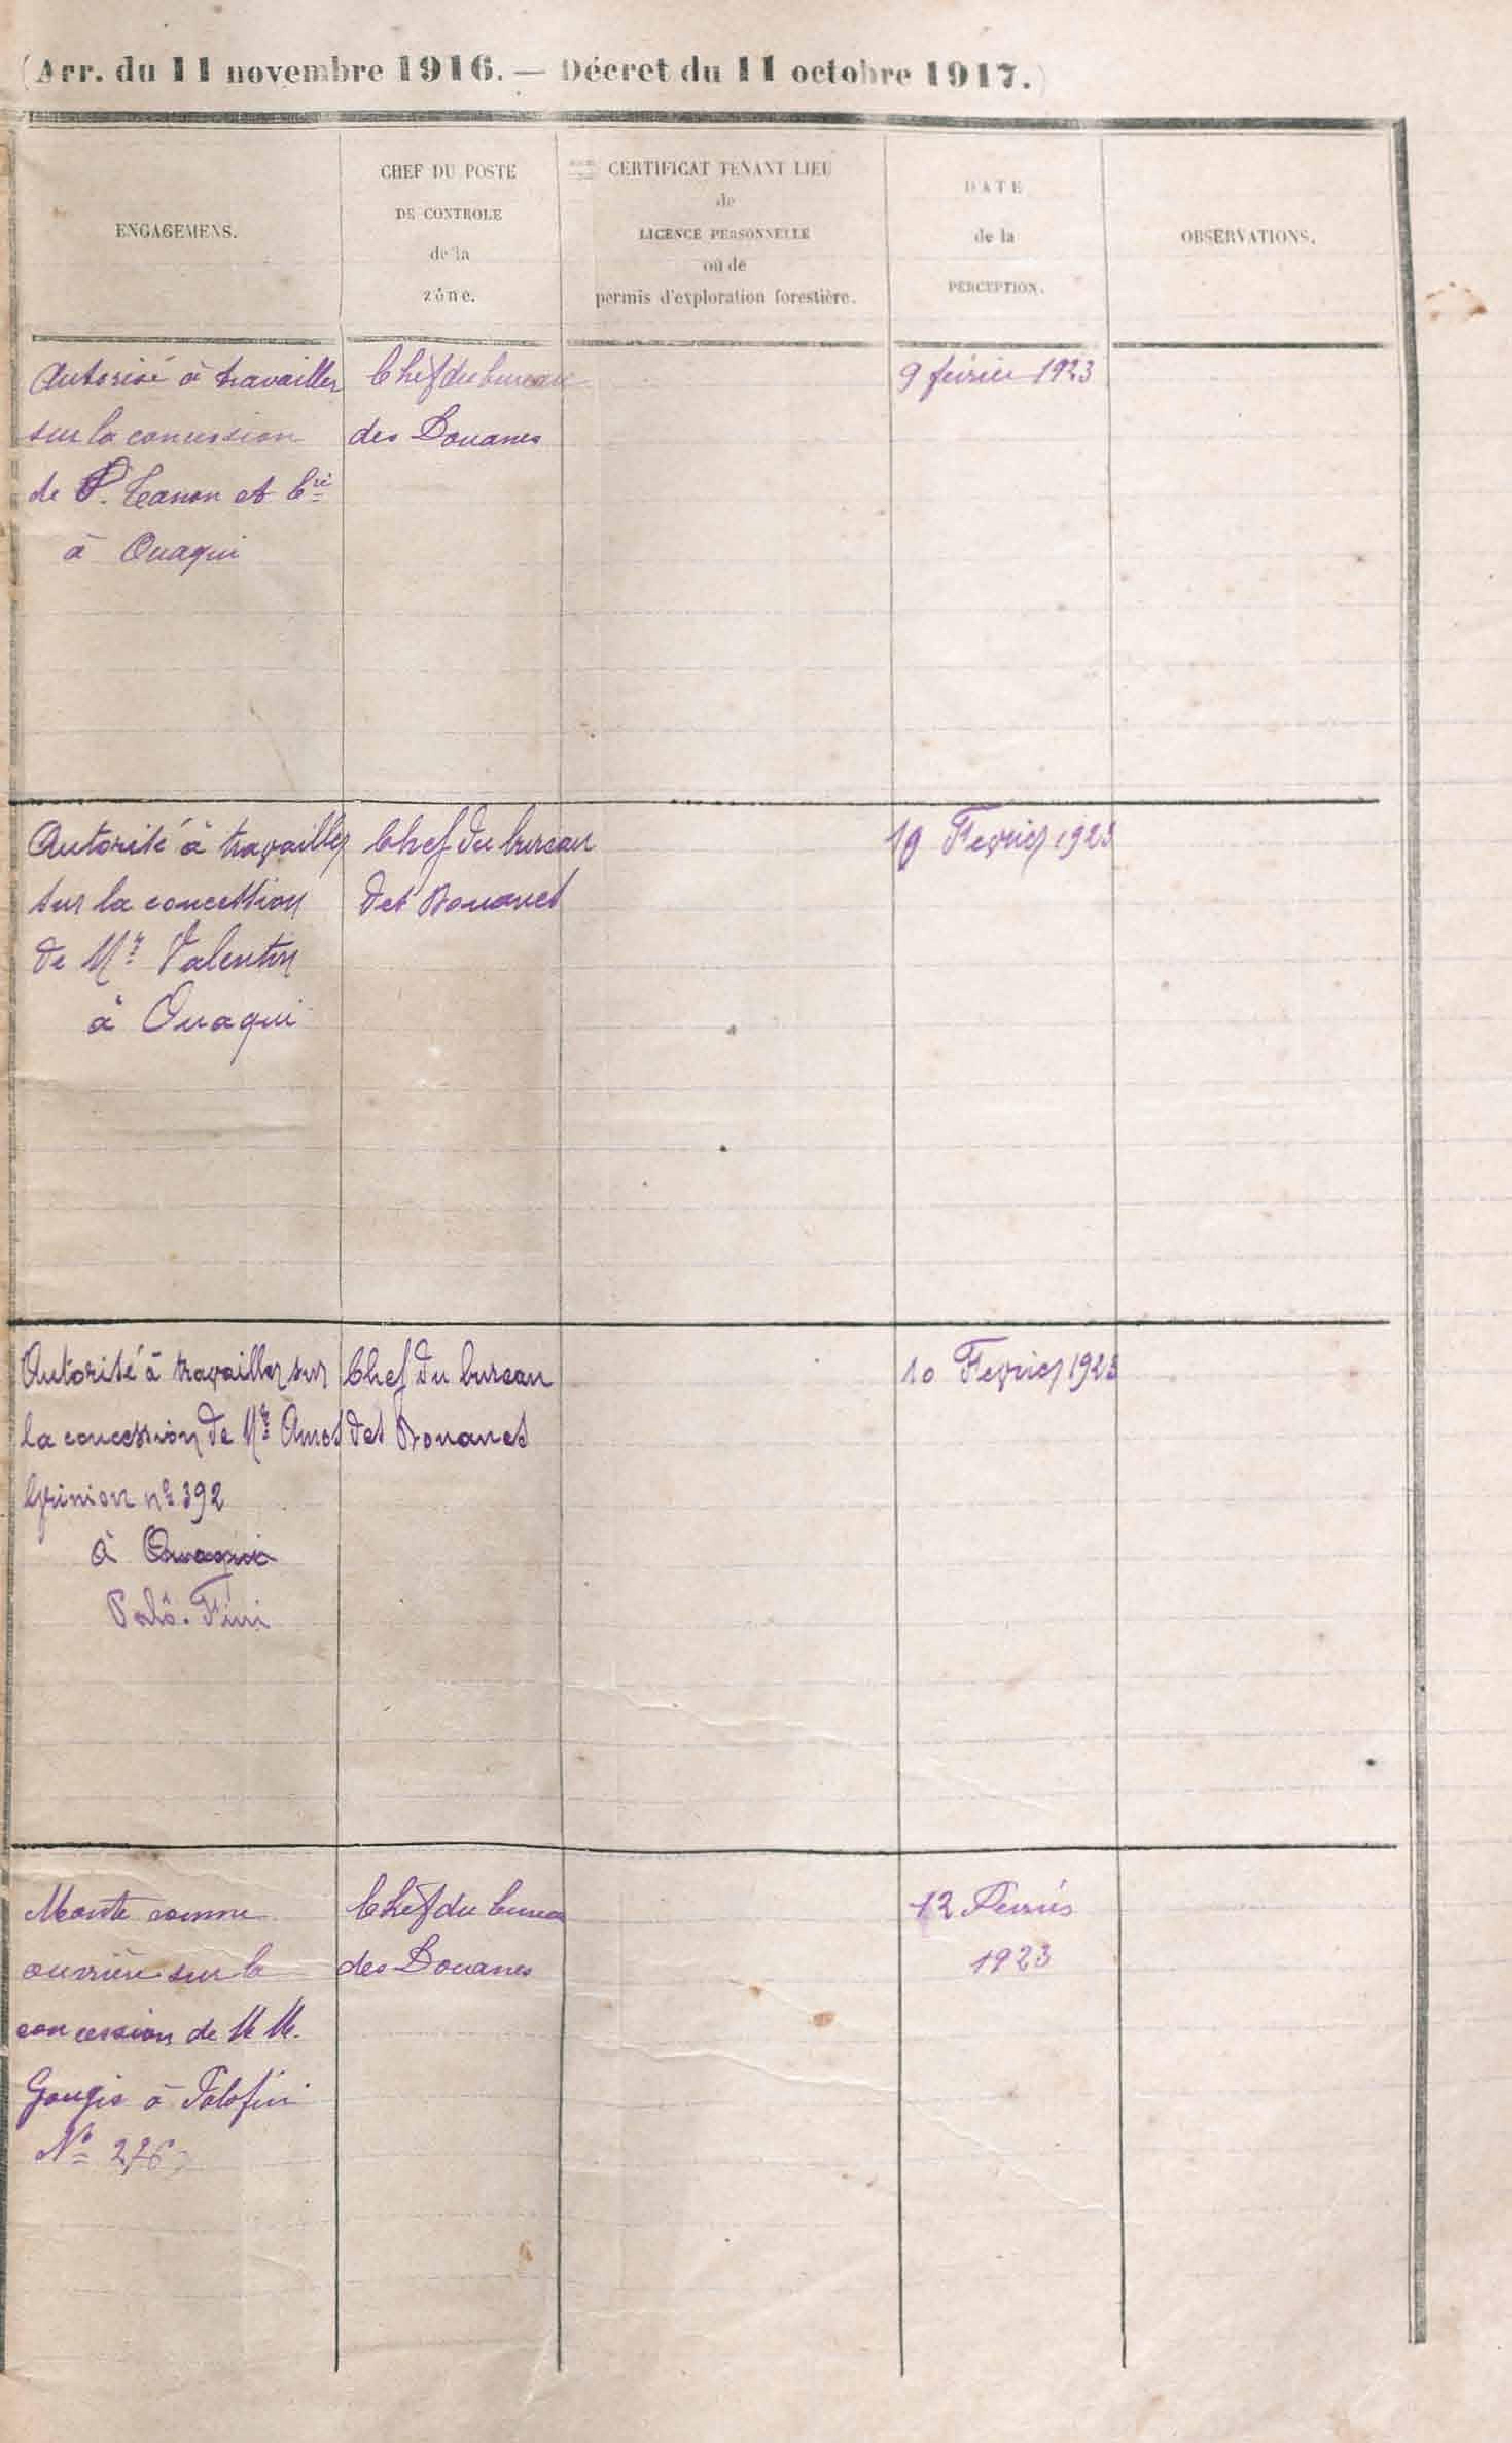 (Arr. du 11 novembre 1916. — Décret du 11 octobre 1917.)
ENGAGEMENS.
CHEF DU POSTE
DE CONTROLE
de la
zône.
CERTIFICAT TENANT LIEU
de
LICENCE PERSONNELLE
ou de
permis d'exploration forestière.
DATE
de la
PERCEPTION.
OBSERVATIONS.
Autorisé à travailler
sur la concession
de P. Tanon et Cie
à Ouaqui
Chef du bureau
des Douanes
9 février 1923
Autorisé à travailler
sur la concession
de Mr Valentin
à Ouaqui
Chef du bureau
des Douanes
10 Fevrier 1923
Autorisé à travailler sur
la concession de Mr Amos
nº 392
à Ouaqui
Polô-Fini
Chef du bureau
des Douanes
10 Fevrier 1923
Monte comme
ouvrière sur la
concession de M M.
Gougis à Polofini
Nº 226
Chef du bureau
des Douanes
12 Février
1923